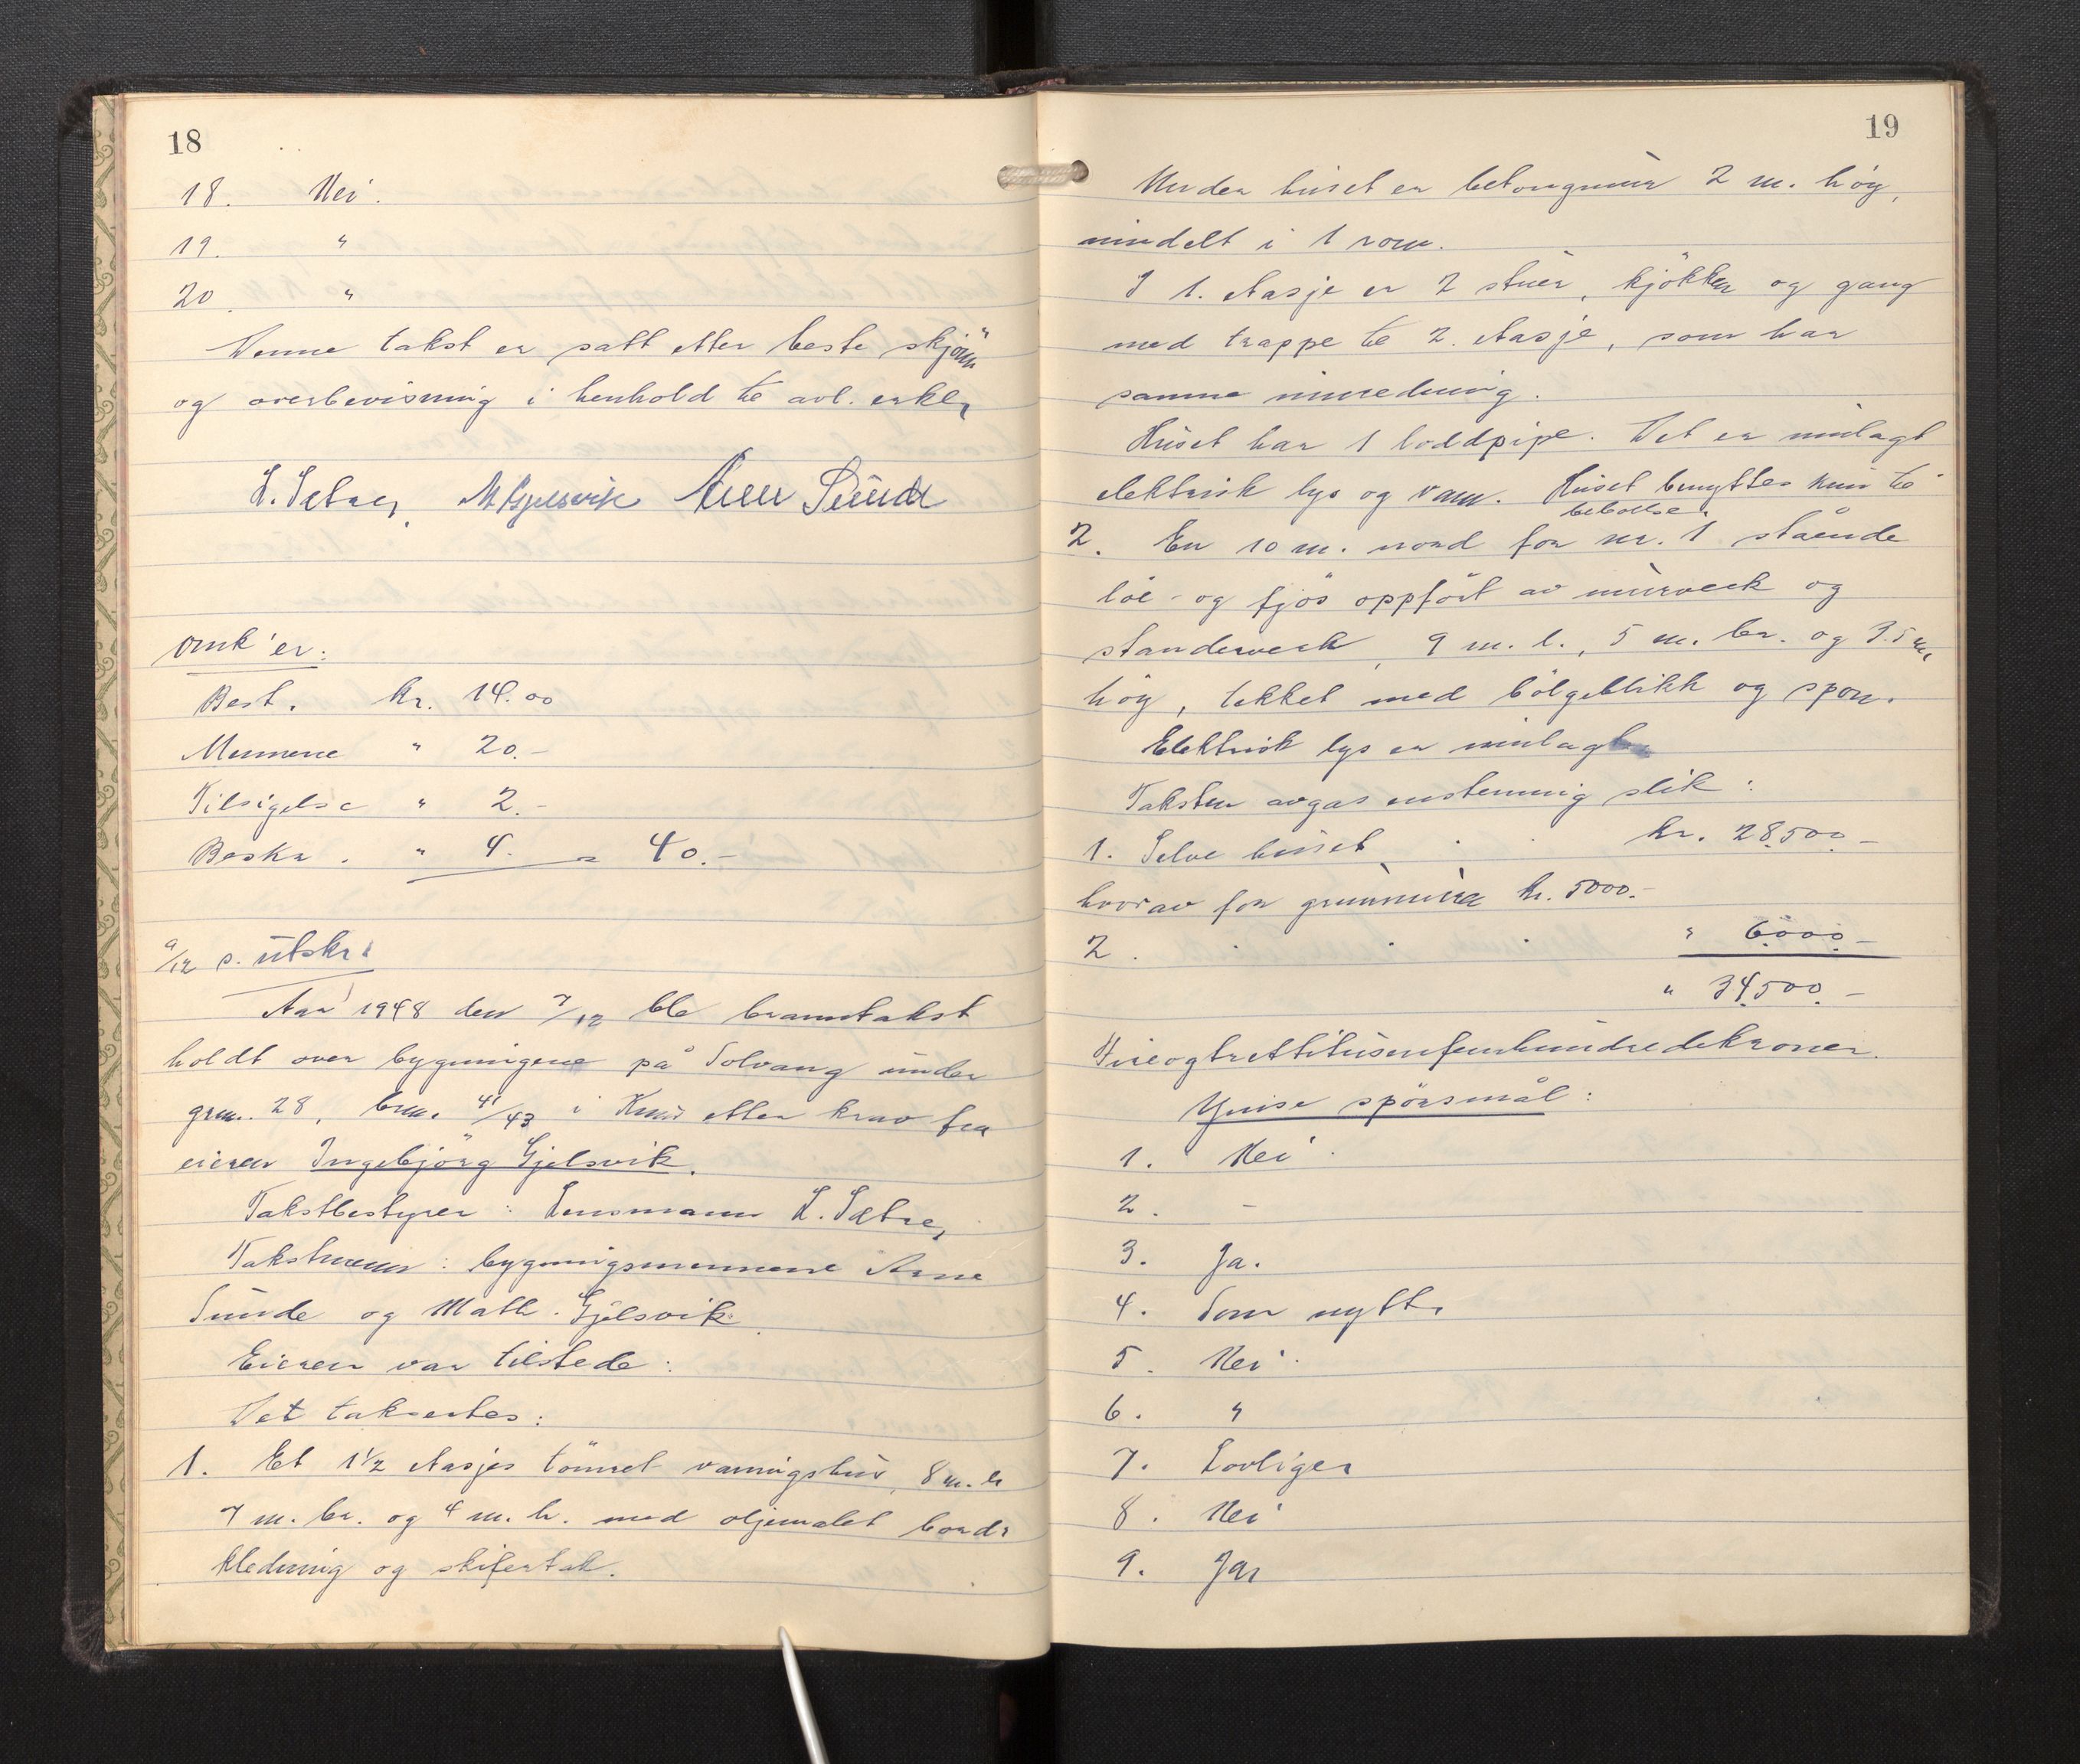 18
18. Nei.
19. "
20. "
Denne takst er satt etter beste skjønn
og overbevisning i henhold te avl. erkl.
L. Sætre, M Gjelsvik Arne Sunde
Omk'er:
Best. kr. 14.00
Mennene " 20.-
Tilsigelse " 2.-
Beskr. " 4. = 40.-
9/12 s. utskr.
Aar 1948 den 7/12 ble branntakst
holdt over bygningene på Solvang under
grnr. 28, brnr. 41/43 i etter krav fra
eieren Ingebjörg Gjelsvik.
Takstbestyrer: Lensmann L. Sætre,
Takstmenn: bygningsmennene Arne
Sunde og Math. Gjelsvik.
Eieren var tilstede:
Det takseertes:
1. Et 1½ etasjes tömret vaaningshus, 8 m. l.
7 m. br. og 4 m. h. med oljemalet bord-
kledning og skifertak.
19
Under huset er betongmur 2 m. höy,
inndelt i 1 rom.
I 1. etasje er 2 stuer, kjökken og gang
med trappe te 2. etasje, som har
samme innredning.
Huset har 1 loddpipe. Det er innlagt
elektrisk lys og vann. Huset benyttes kun te
beboelse.
2. En 10 m. nord for nr. 1 stående
löe- og fjös oppfört av murverk og
standerverk, 9 m. l., 5 m. br. og 3.5 m.
höy, tekket med bölgeblikk og spon.
Elektrisk lys er innlagt.
Taksten avgas enstemmig slik:
1. Selve huset . . kr. 28.500.-
hvorav for grunnmur kr. 5000.-
2. . . . " 6.000.-
" 34.500.-
Fireogtrettitusenfemhundredekroner.
Ymse spörsmål:
1. Nei.
2. -
3. Ja.
4. Som nytt.
5. Nei.
6. "
7. Lovlige.
8. Nei
9. Ja.